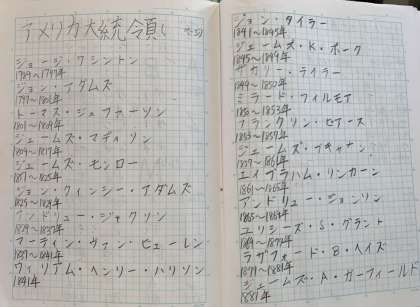 アメリカ大統領
ジョージ・ワシントン
1789〜1797年
ジョン・アダムズ
1797〜1801年
トーマス・ジェファーソン
1801〜1809年
ジェームズ・マディソン
1809〜1817年
ジェームズ・モンロー
1817〜1825年
ジョン・クィンシー・アダムズ
1825〜1829年
アンドリュー・ジャクソン
1829〜1837年
マーティン・ヴァン・ビューレン
1837〜1841年
ウィリアム・ヘンリー・ハリソン
1841年
ジョン・タイラー
1841〜1845年
ジェームズ・K・ポーク
1845〜1849年
ザカリー・テイラー
1849〜1850年
ミラード・フィルモア
1850〜1853年
フランクリン・ピアース
1853〜1857年
ジェームズ・ブキャナン
1857〜1861年
エイブラハム・リンカーン
1861〜1865年
アンドリュー・ジョンソン
1865〜1869年
ユリシーズ・S・グラント
1869〜1877年
ラザフォード・B・ヘイズ
1877〜1881年
ジェームズ・A・ガーフィールド
1881年